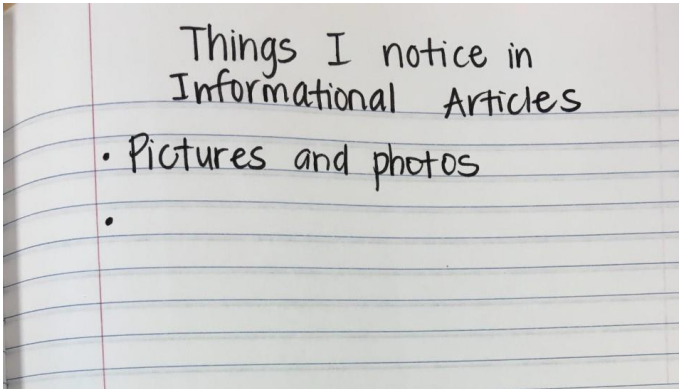 Things I notice in
Informational Articles
• Pictures and photos
•